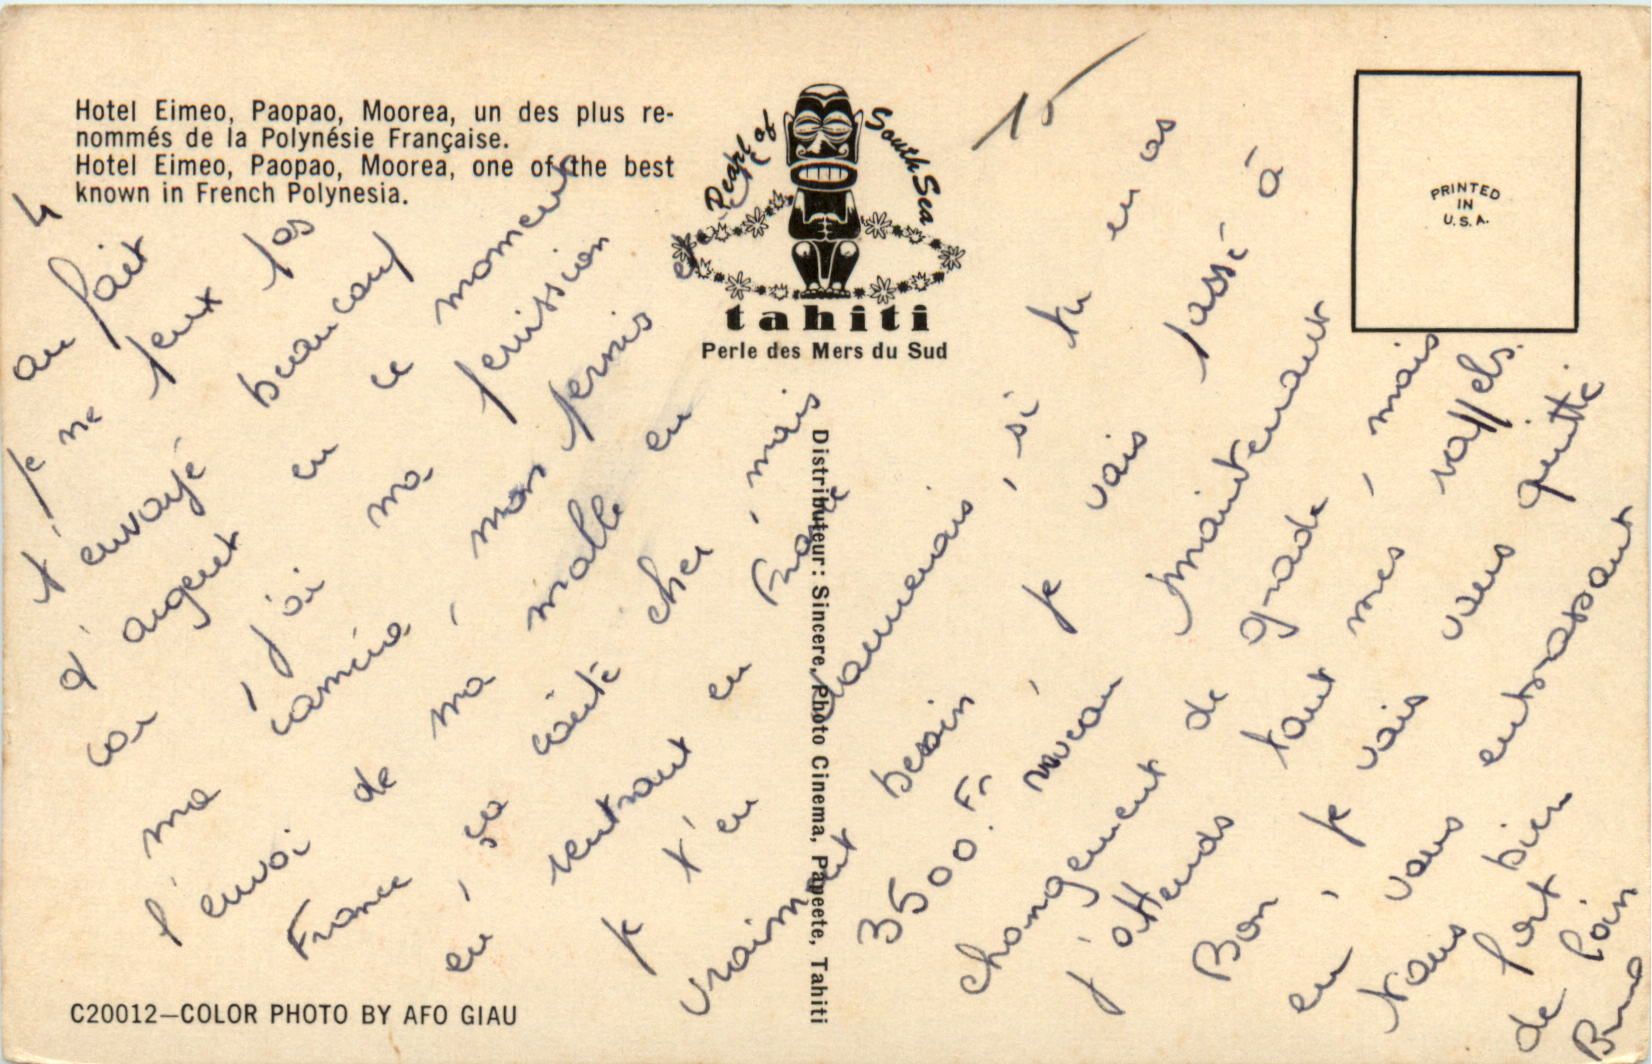 Hotel Eimeo, Paopao, Moorea, un des plus re-
nommés de la Polynésie Française.
Hotel Eimeo, Paopao, Moorea, one of the best
known in French Polynesia.
Pearl of South Sea
tahiti
Perle des Mers du Sud
PRINTED
IN
U.S.A.
15
4
au fait
je ne peux pas
t'envoyé beaucoup
d'argent en ce moment
car, j'ai ma permission
ma caméra, mon permis et
l'envoi de ma malle en
France, ça coûte cher, mais
en rentrant en France
je t'en donnerais, si tu en as
vraiment besoin je vais passé à
3500.Fr nouveau maintenant
changement de grade, mais
j'attends tout mes rappels.
Bon, je vais vous quitté
en vous embrassant
tous bien
de part
de loin
Bruno
Distributeur: Sincere, Photo Cinema, Papeete, Tahiti
C20012—COLOR PHOTO BY AFO GIAU